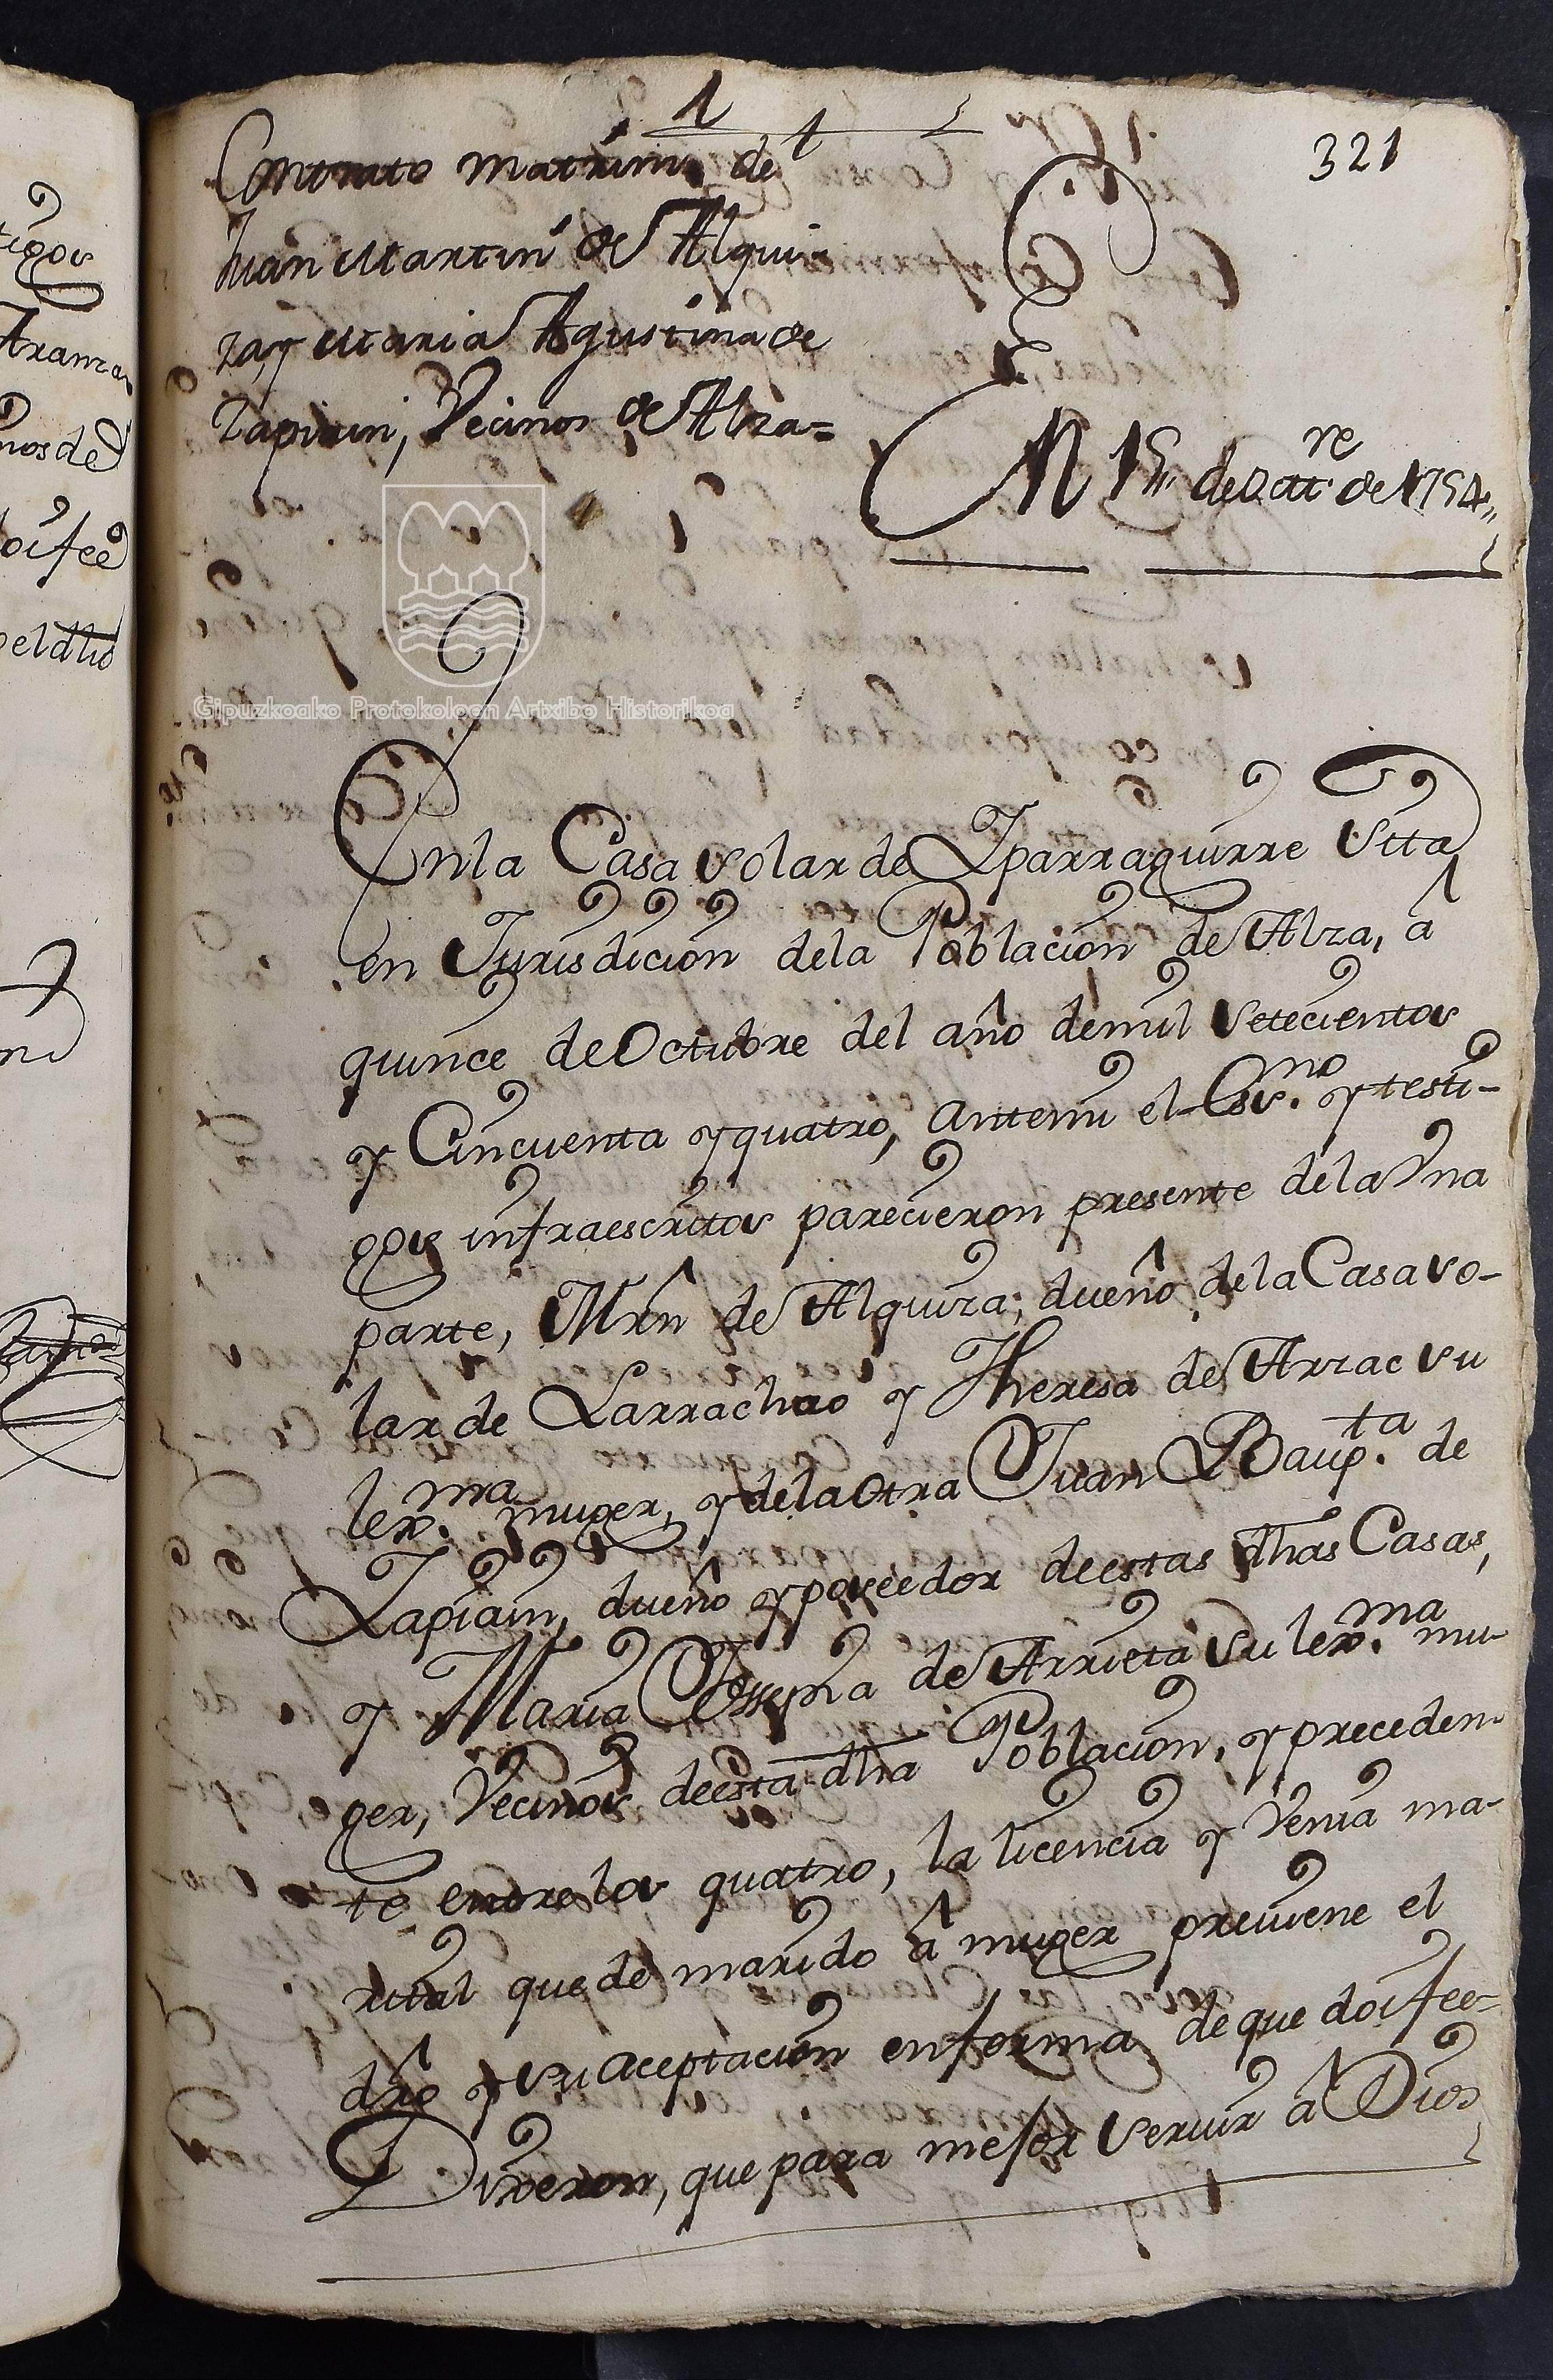 1
321
Contrato matrim.l de
Juan Martin de Alqui-
za, y Maria Agustina de
Zapiain, Vecinos de Alza=
En 15,, de Oct.re de 1754,,
Gipuzkoako Protokoloen Artxibo Historikoa
En la Casa solar de Yparraguirre sita
en Jurisdicion dela Poblacion de Alza, â
quince de Octubre del año de mil setecientos
y Cincuenta y quatro, ante mi el Esc.no y testi-
gos infraescritos parecieron presente de la Vna
parte, Mrn de Alquiza; dueño de la Casa so-
lar de Larrachao y Theresa de Arzac su
lex.ma muger, y de la otra Juan Baup.ta de
Zapiain, dueño y poseedor de estas dhas Casas,
y Maria Josepha de Arrieta su lex.ma mu-
ger, Vecinos de esta dha Poblacion, y preceden-
te entre los quatro, la licencia y Venia ma-
rital que de marido â muger previene el
dro y su aceptacion en forma de que doi fee=
Dixeron, que para mejor servir â Dios
tigos
Aranza
nos de
doi fee
el dho